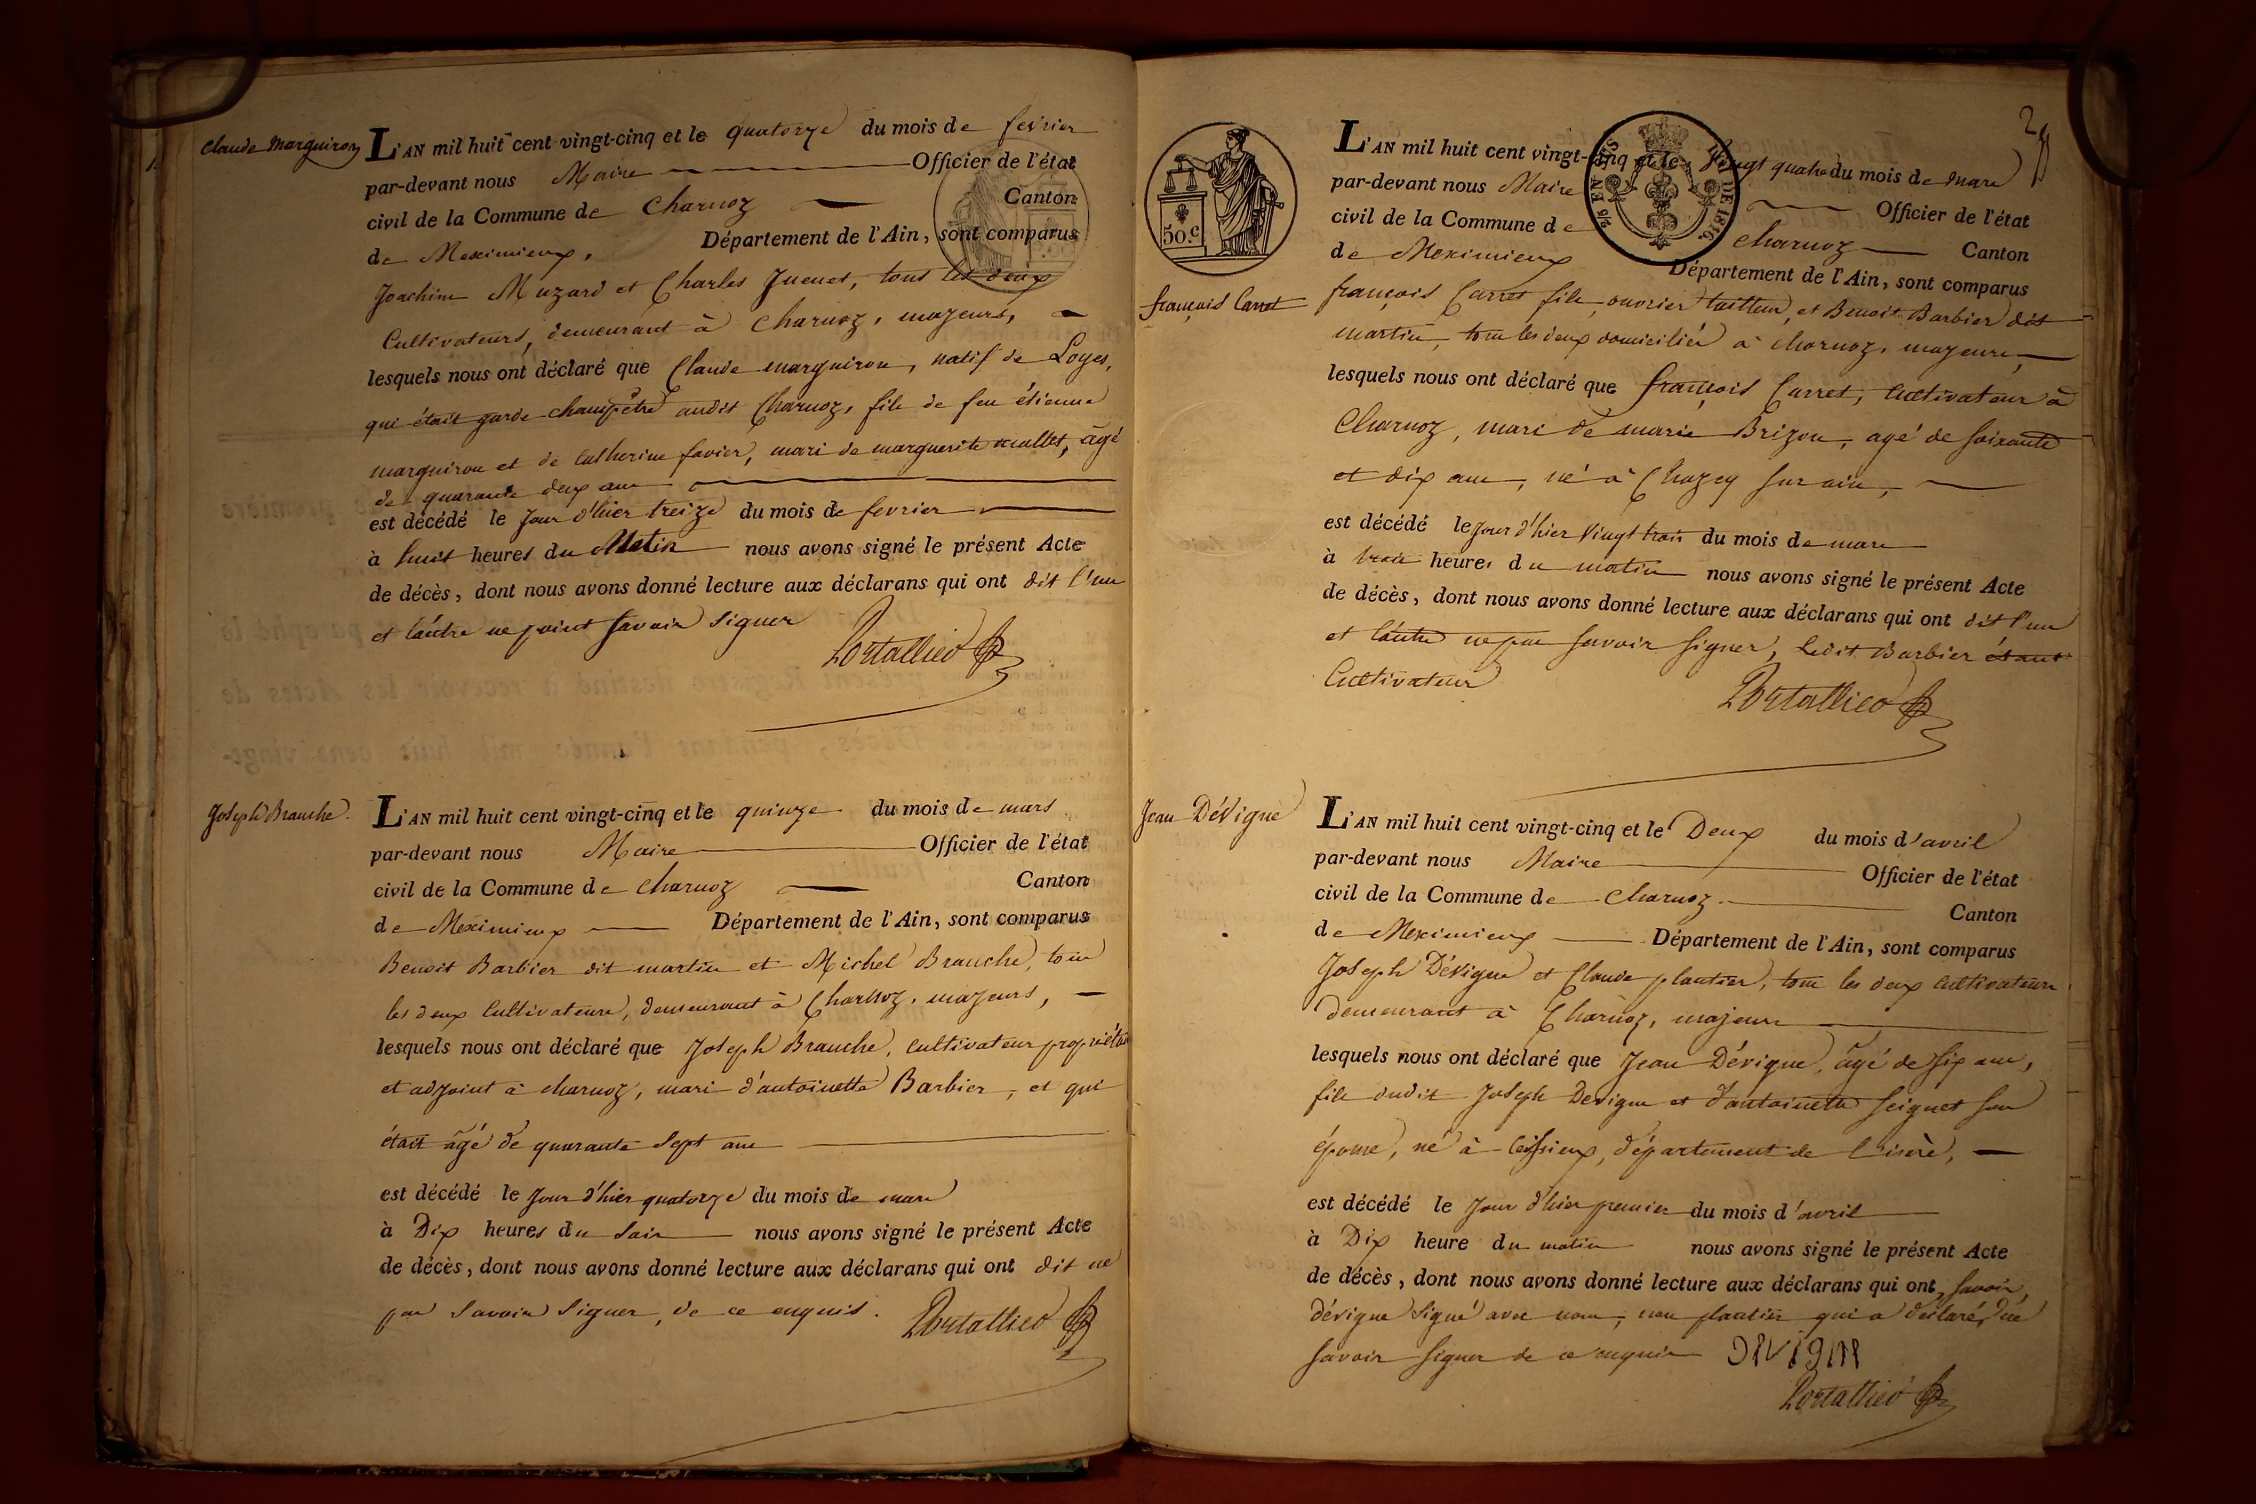 Claude Marguiron
L'AN mil huit cent vingt-cinq et le quatorze du mois de fevrier
par-devant nous Maire Officier de l'état
civil de la Commune de Charnoz Canton
de Meximieux, Département de l'Ain, sont comparus
Joachim Muzard et Charles Juenet, tous les deux
Cultivateurs, demeurant à Charnoz, majeurs,
lesquels nous ont déclaré que Claude marguiron, natif de Loyes,
qui était garde champêtre audit Charnoz, fils de feu étienne
marguiron et de Catherine favier, mari de marguerite mallet, âgé
de quarante deux ans
est décédé le jour d'hier treize du mois de fevrier
à huit heures du Matin nous avons signé le présent Acte
de décès, dont nous avons donné lecture aux déclarans qui ont dit l'un
et l'autre ne point savoir signer
Portallier
Joseph Branche.
L'AN mil huit cent vingt-cinq et le quinze du mois de mars
par-devant nous Maire Officier de l'état
civil de la Commune de Charnoz Canton
de Meximieux Département de l'Ain, sont comparus
Benoit Barbier dit martin et Michel Branche, tous
les deux Cultivateurs, demeurant à Charnoz, majeurs,
lesquels nous ont déclaré que Joseph Branche, cultivateur propriétaire
et adjoint à charnoz, mari d'antoinette Barbier, et qui
était âgé de quarante sept ans
est décédé le jour d'hier quatorze du mois de mars
à Dix heures du Soir nous avons signé le présent Acte
de décès, dont nous avons donné lecture aux déclarans qui ont dit ne
pas Savoir Signer, de ce enquis.
Portallier
2
50.c
2/6 EN SUS
LOI DE 1816.
françois Carret
L'AN mil huit cent vingt-cinq et le vingt quatre du mois de mars
par-devant nous Maire Officier de l'état
civil de la Commune de Charnoz Canton
de Meximieux Département de l'Ain, sont comparus
françois Carret fils, ouvrier tailleur, et Benoit Barbier dit
martin, tous les deux domiciliés à charnoz, majeurs,
lesquels nous ont déclaré que françois Carret, Cultivateur à
Charnoz, mari de marie Brizon, agé de soixante
et dix ans, né à Chazey sur ain,
est décédé le jour d'hier vingt trois du mois de mars
à trois heures du matin nous avons signé le présent Acte
de décès, dont nous avons donné lecture aux déclarans qui ont dit l'un
et l'autre ne pas savoir signer, Ledit Barbier étant
Cultivateur
Portallier
Jean Dévigne
L'AN mil huit cent vingt-cinq et le Deux du mois d'avril
par-devant nous Maire Officier de l'état
civil de la Commune de Charnoz Canton
de Meximieux Département de l'Ain, sont comparus
Joseph Dévigne et Claude plantier, tous les deux cultivateurs
demeurant à Charnoz, majeurs
lesquels nous ont déclaré que Jean Dévigne, âgé de six ans,
fils dudit Joseph Devigne et d'antoinette Seignet son
épouse, né à, département de l'isère,
est décédé le jour d'hier premier du mois d'avril
à Dix heure du matin nous avons signé le présent Acte
de décès, dont nous avons donné lecture aux déclarans qui ont, savoir,
dévigne Signé avec nous, non plantier qui a déclaré ne
savoir signer de ce enquis
Portallier